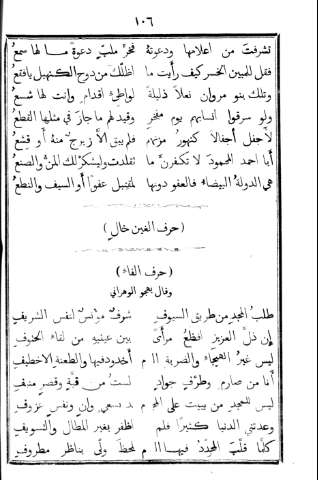 ١٠٦
تشرفت من اعلامها ودعوته فخير ملبٍ دعوة ما لها سمعُ
فقل للمبين الخسر كيف رأيت ما اظلك من دوح الكنهبل يافقعُ
وتلك بنو مروان نعلاً ذليلة لواطئ اقدام وانت لها شسعُ
ولو سرقوا انسابهم يوم مفخر وقيد لهم ما جاز في مثلها القطعُ
لأجفل اجفالاً كنهور مزنهم فلم يبق الا زبرج منه أو قشعُ
أبا احمد المحمود لا تكفرن ما تقلدت وليشكر لك المن والصنعُ
هي الدولة البيضاء فالعفو دونها لمقتبل عفواً أو السيف والنطعُ
(حرف الغين خالٍ)
(حرف الفاء)
وقال يهجو الوهراني
طلب المجد من طريق السيوف شرف مؤنس لنفس الشريف
إن ذل العزيز افظع مرأى بين عينيه من لقاء الحتوف
ليس غير الهيجاء والضربة الأ م أخدود فيها والطعنة الاخطيف
أنا من صارم وطرف جواد لست من قبة وقصر منيف
ليس للمجد من يبيت على المج م د بسعي وانٍ ونفس عزوف
وعدتني الدنيا كثيرًا فلم اظفر بغير المطال والتسويف
كلما قلب المحدد فيها ال م لحظ ولّى بناظر مطروف